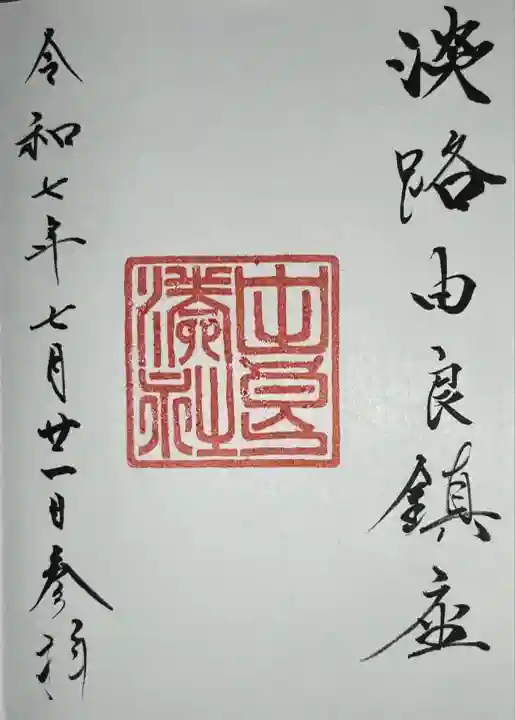 淡路由良鎮座
由良湊社
令和七年七月廿一日参拝